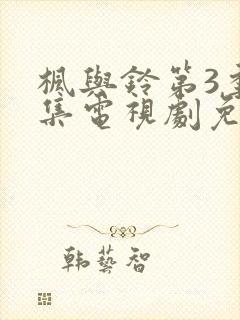 楓與鈴第3季
集電視劇免
韓藝智